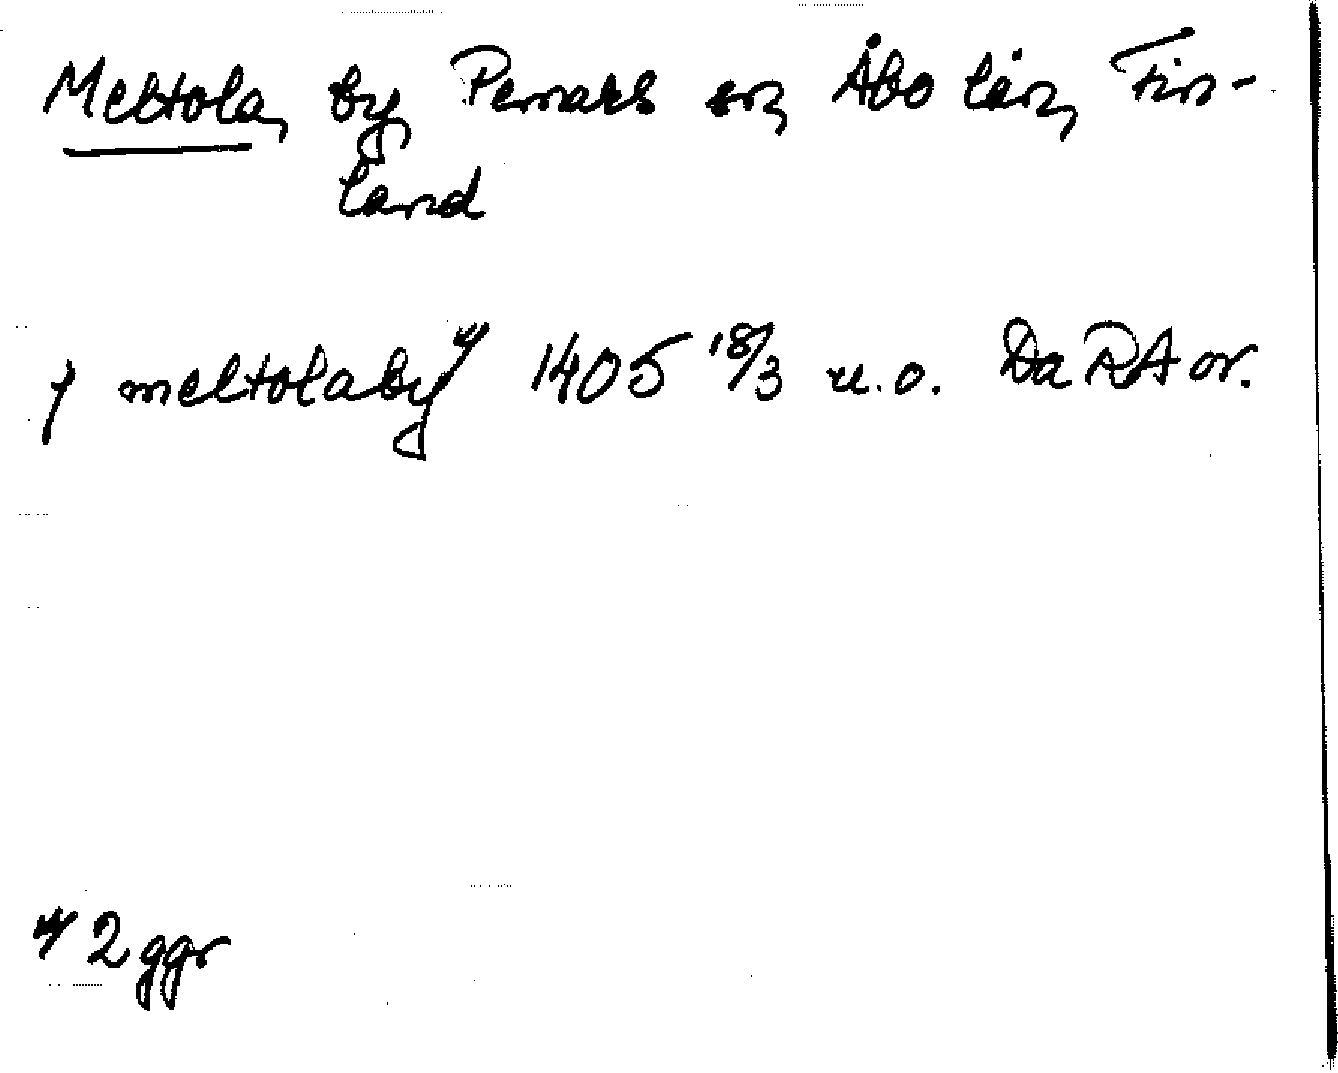 Meltola, by, Pemars sn, Åbo län, Fin-
land
j meltolaby 4/ 1405 18/3 u.o. Da RA or.
4/ 2 ggr